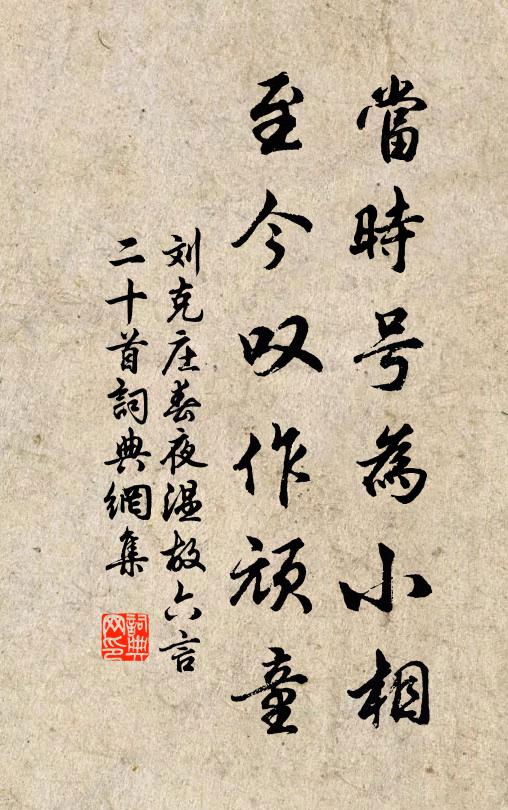 當時号為小相
至今叹作頑童
刘克庄春夜温故六言
二十首詞典網集
詞典网印